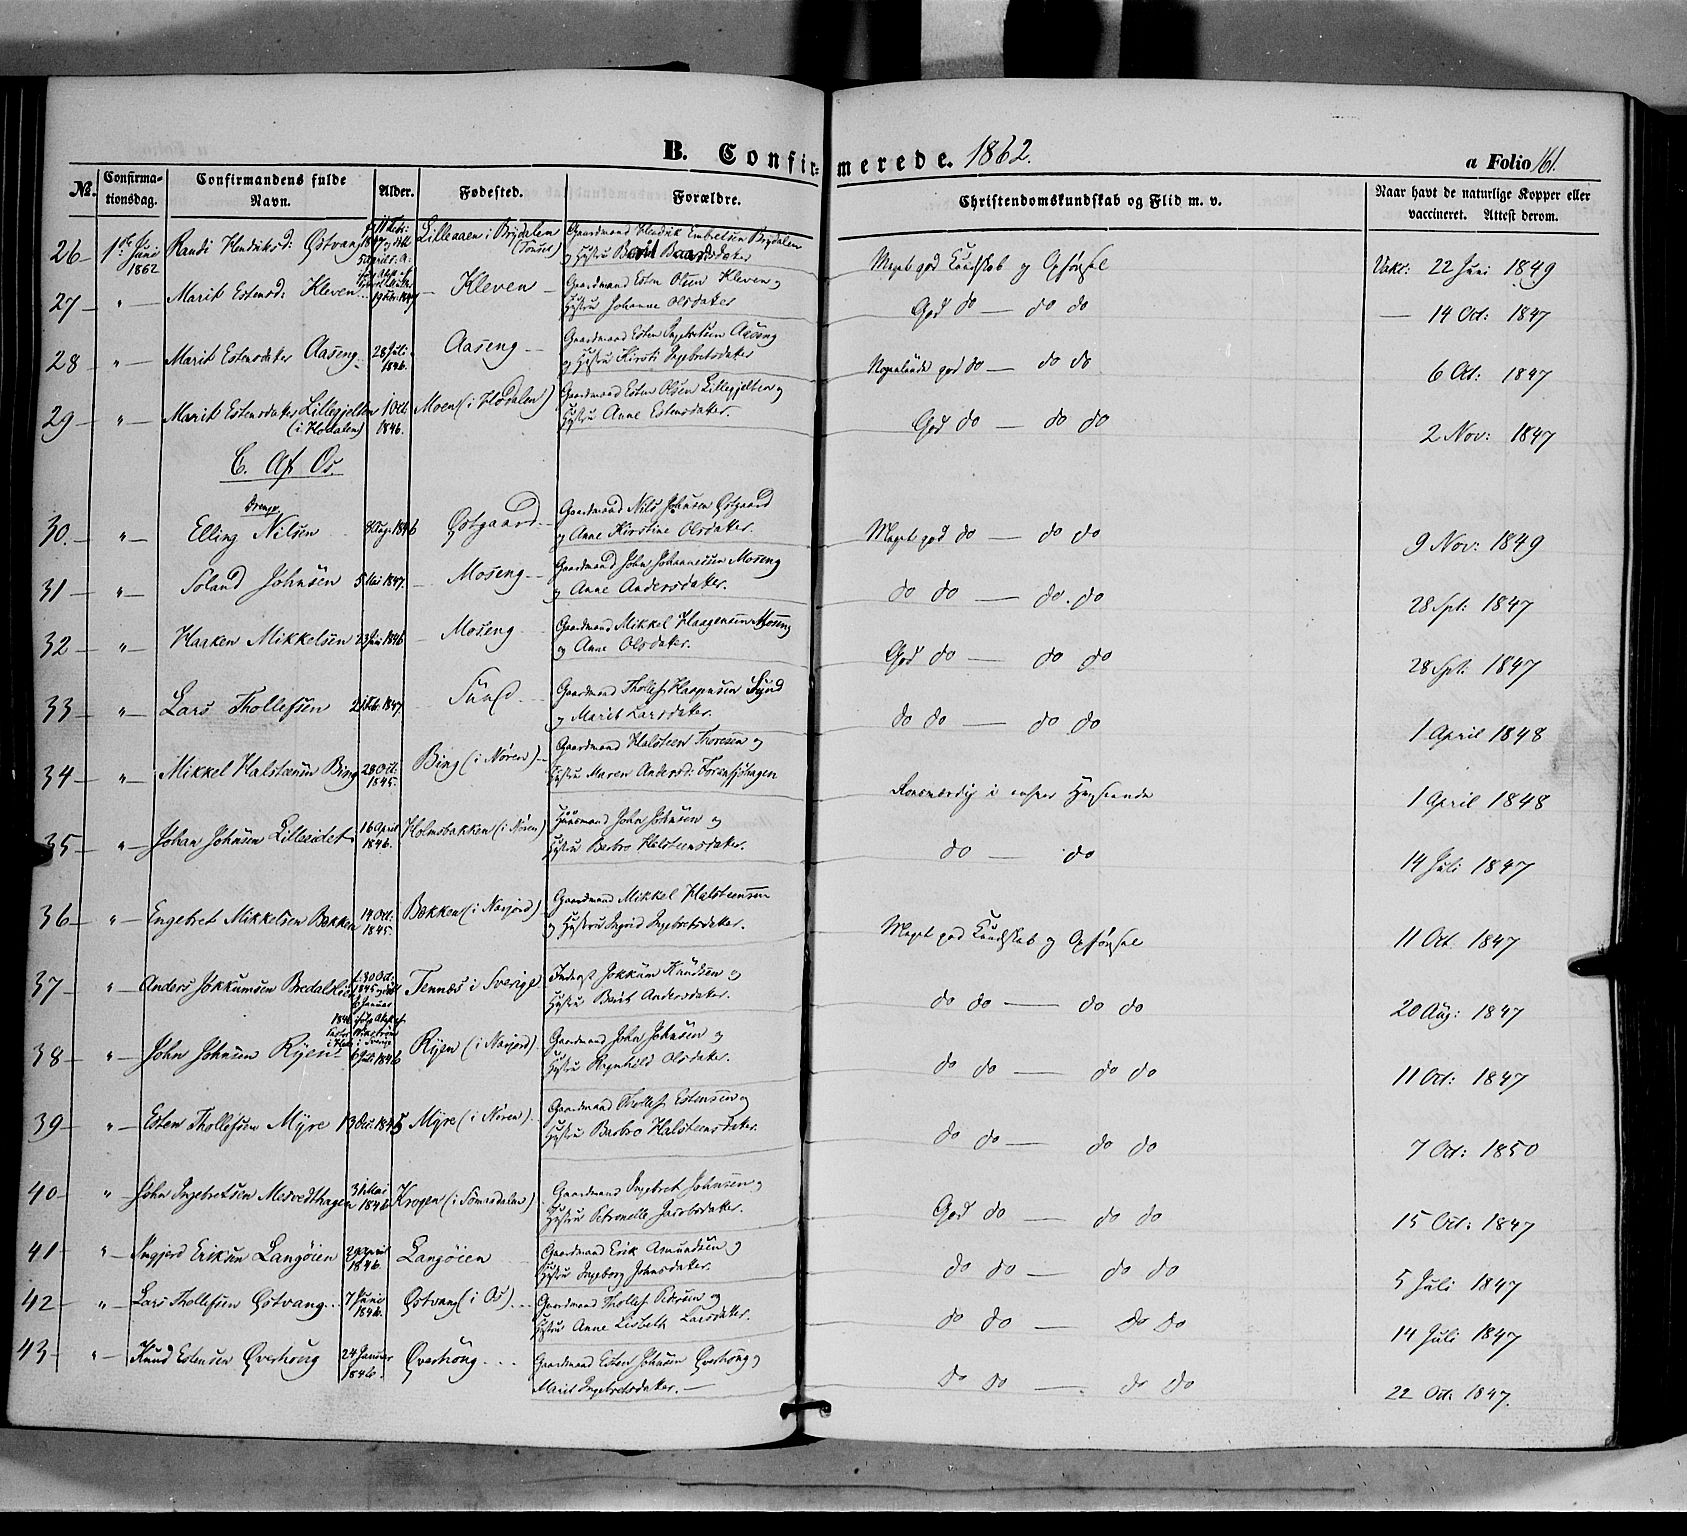 B. Confirmerede. 1862.
a Folio 161.
No. Confirmationsdag. Confirmandens fulde Navn. Alder. Fødested. Forældre. Christendomskundskab og Flid m. v. Naar havt de naturlige Kopper eller vaccineret. Attest derom.
26 1ste Juni 1862 Randi Henriksd: Østvang Lilleaaen i Brydalen (Tønset) Gaardmand Henrik Embretsen Brydalen
og Hustru Berit Baardsdatter Meget god Kundskab og Opførsel Vakc: 22 Juni 1849
27 " Marit Estensd: Kleven Kleven Gaardmand Esten Olsen Kleven og
Hustru Johanne Olsdatter God do — do do — 14 Oct: 1847
28 " Marit Estensdatter Aaseng 28 Juli 1846. Aaseng Gaardmand Esten Ingebretsen Aaseng
og Hustru Kirsti Ingebretsdatter Nogenlunde god do — do do 6 Oct: 1847
29 " Marit Estensdatter Lillegjelten (i Hodalen) 1 Oct. 1846. Moen (i Hodalen) Gaardmand Esten Olsen Lillegjelten og
Hustru Anne Estensdatter. God do — do do 2 Nov: 1847
C. Af Os.
Drenge
30. " Elling Nilsen 8 Aug. 1846 Østgaard Gaardmand Nils Johnsen Østgaard
og Anne Kirstine Olsdatter. Meget god do — do do 9 Nov: 1849
31 " Toland Johnsen 5 Mai 1847. Moseng Gaardmand John Johannessen Moseng
og Anne Andersdatter. do do — do. do 28 Spt: 1847
32 " Haaken Mikkelsen 23 Juni 1846 Moseng Gaardmand Mikkel Haagensen Moseng
og Anne Olsdatter. God do — do do 28 Spt: 1847
33 " Lars Thollefsen 21 Feb. 1847 Sund Gaardmand Thollef Haagensen Sund
og Marit Larsdatter. do do — do do 1 April 1848
34 " Mikkel Halsteensen Bing 28 Oct. 1845. Bing (i Nøren) Gaardmand Halsteen Thoresen og
Hustru Maren Andersd: 1 April 1848
35 " Johan Johnsen Lilleeidet 16 April 1846. Holmsbakken (i Nøren) Huusmand John Johnsen og
Hustru Berbro Halsteensdatter. do — do 14 Juli 1847
36 " Engebret Mikkelsen Bekken 14 Oct. 1845. Bekken (i Narjord) Gaardmand Mikkel Halsteensen
og Hustru Ingrid Ingebretsdatter. Meget god Kundskab og Opførsel 11 Oct. 1847
37 " Anders Jokkumsen Bredalslien Tennæs i Sverige Inderst Jokkum Knudsen og
Hustru Berit Andersdatter. do do — do do 20 Aug: 1847
38 " John Johnsen Ryen 6 Juli 1846 Ryen (i Narjord) Gaardmand John Johnsen og
Hustru Ragnhild Olsdatter. do do — do do 11 Oct: 1847
39 " Esten Thollefsen Myre 13 Dec. 1845 Myre (i Nøren) Gaardmand Thollef Estensen og
Hustru Barbro Halsteensdatter. do do — do do 7 Oct: 1850
40 " John Ingebretsen Medvedthagen 31 Mai 1846 Krogen (i Tomasdalen) Gaardmand Ingebret Johnsen og
Hustru Petronelle Jacobsdatter. God do — do do 15 Oct: 1847
41 " Ingjerd Eriksen Langøien April 1846. Langøien Gaardmand Erik Amundsen og
Hustru Ingeborg Johnsdatter. do do — do do 5 Juli 1847
42 " Lars Thollefsen Østvang 7 Juni 1846. Østvang (i Os) Gaardmand Thollef Pedersen og
Hustru Anne Lisbeth Larsdatter. do do — do do 14 Juli 1847
43 " Knud Estensen Øverhoug 24 Januar 1846. Øverhoug Gaardmand Esten Johnsen Øverhoug og
Marit Ingebretsdatter. — do do — do do 22 Oct: 1847.